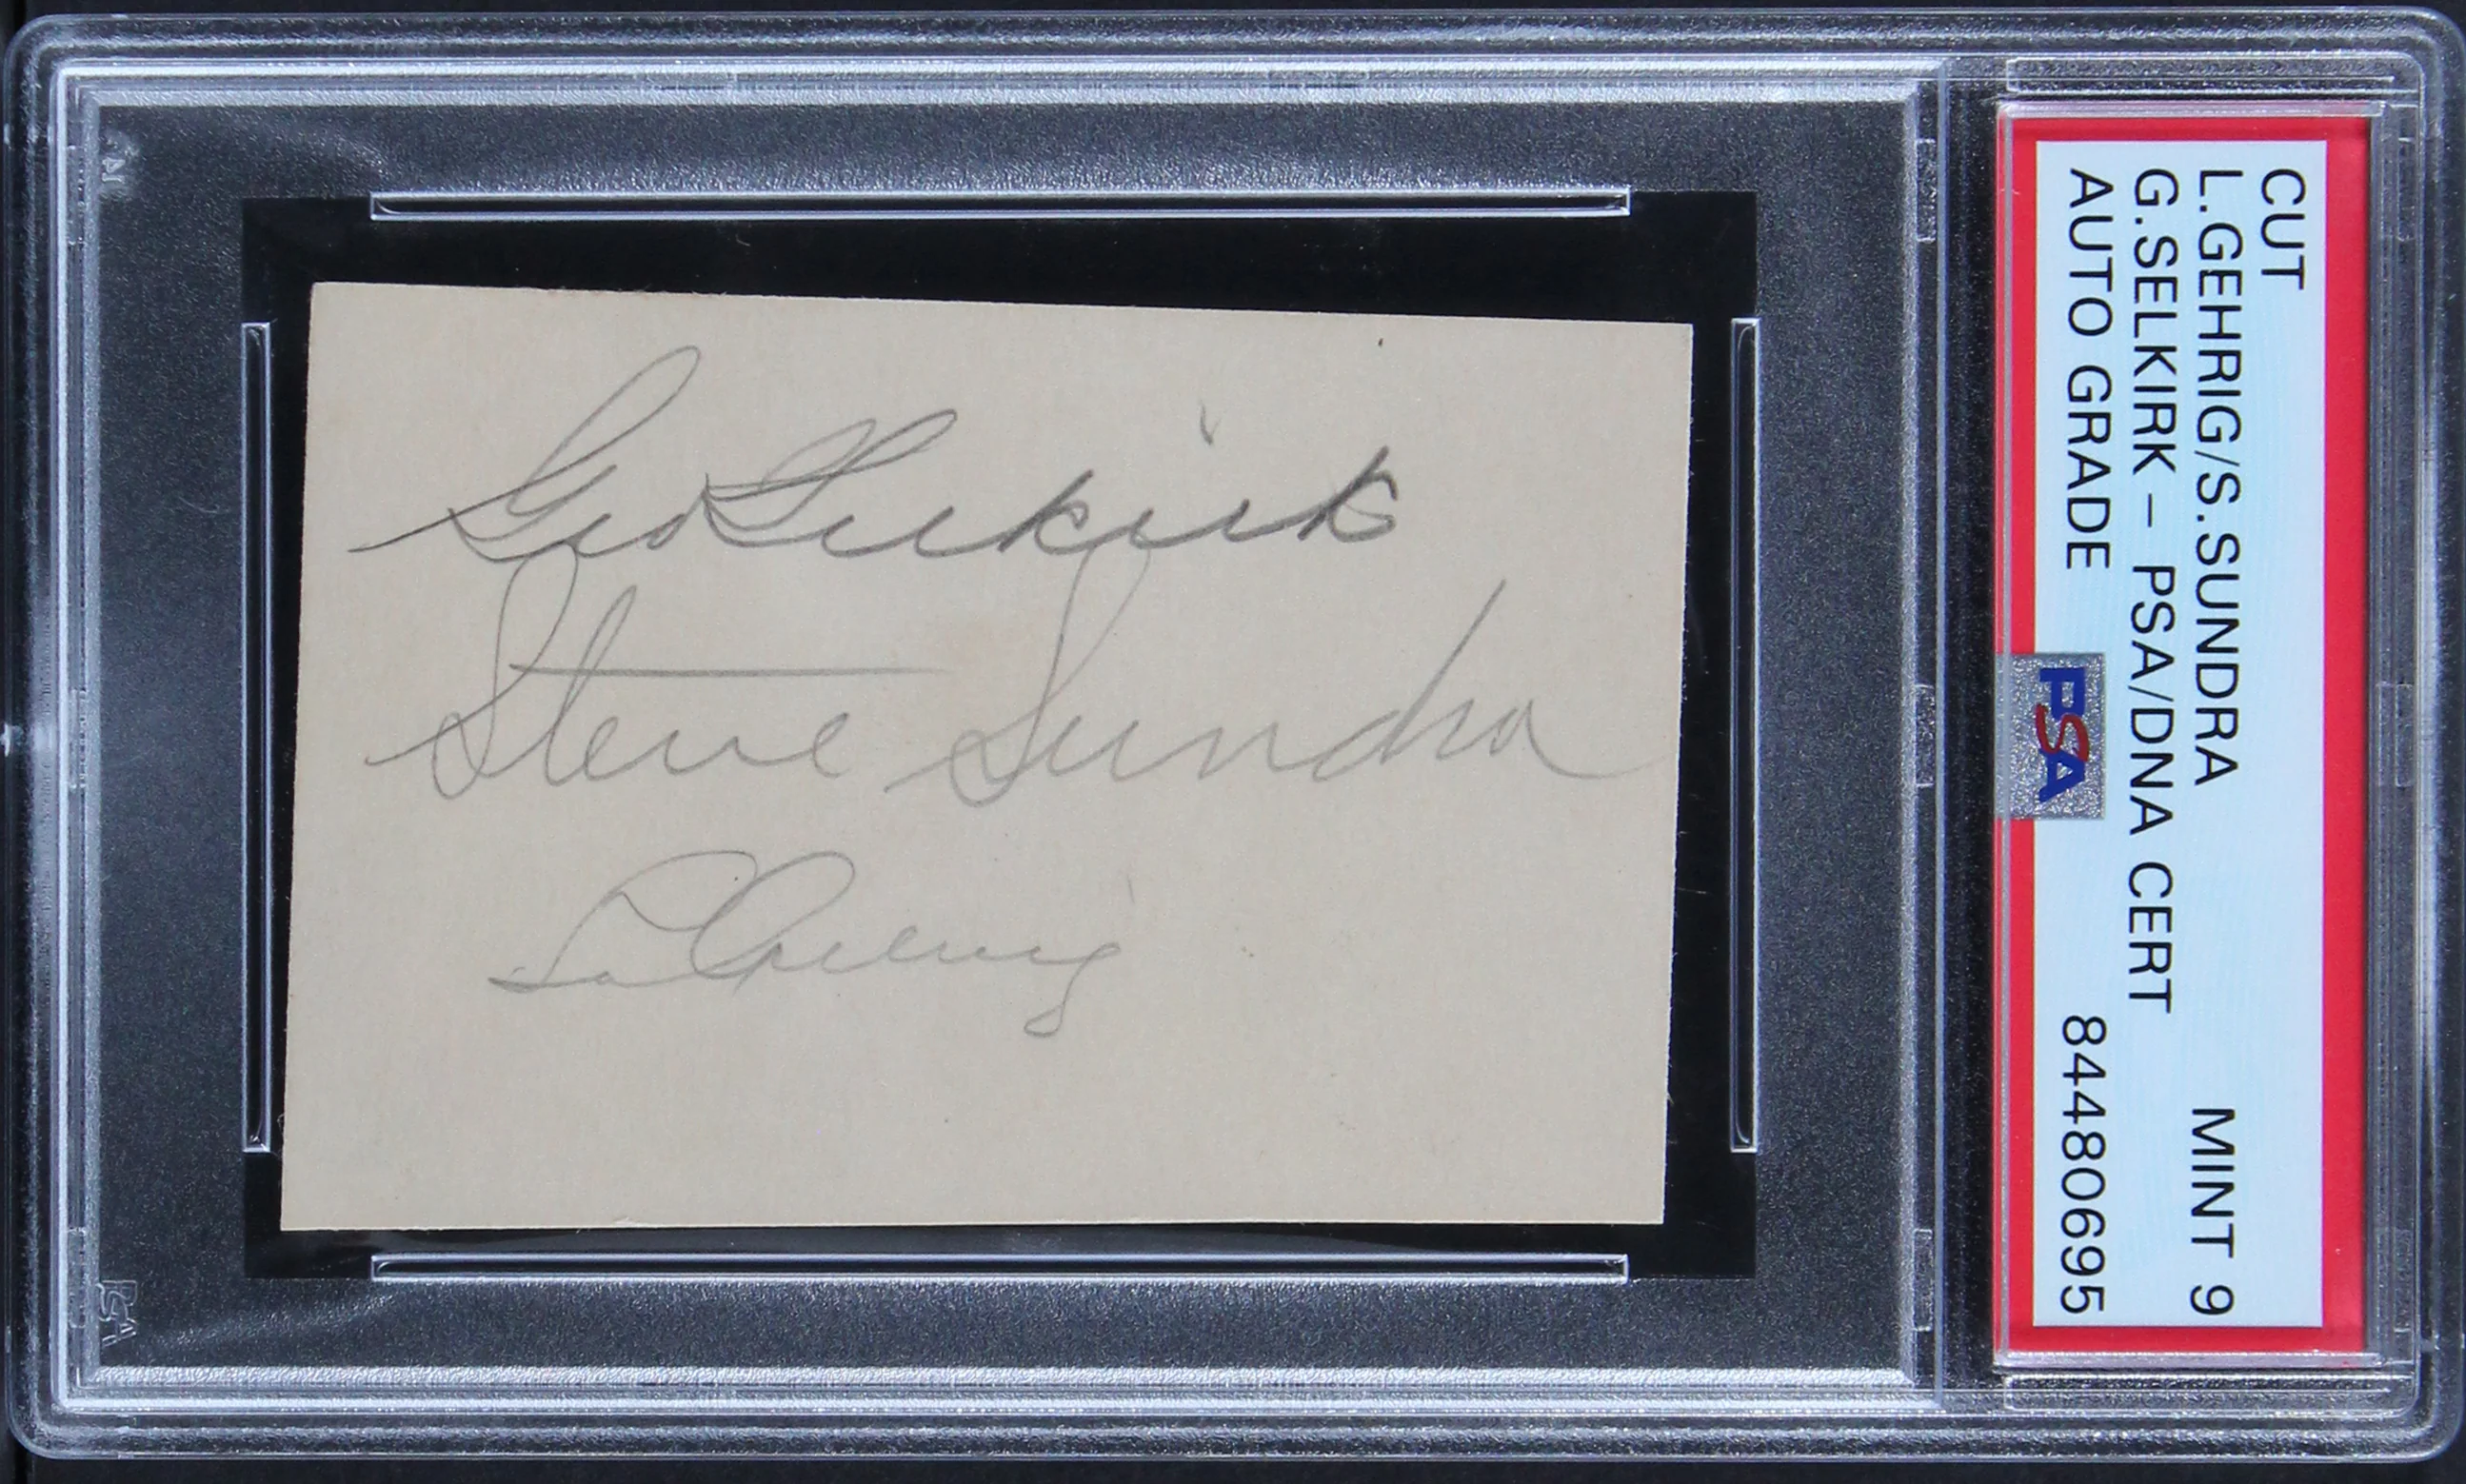 Geo Selkirk
Steve Sundra
Lou Gehrig
CUT
L.GEHRIG/S.SUNDRA MINT 9
G.SELKIRK - PSA/DNA CERT
AUTO GRADE 84480695
PSA
PSA